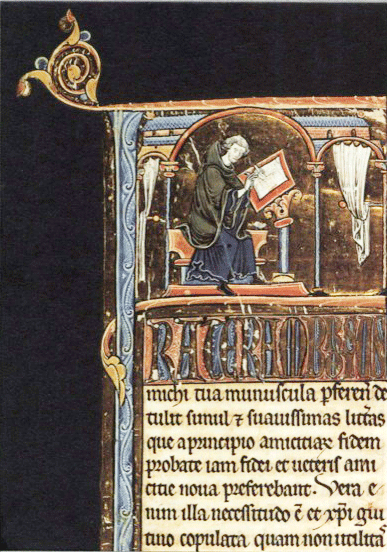 RATER AMBROSIUS
michi tua munuscula ꝑferens de
tulit simul ⁊ suauissimas litt̄as
que a principio amicitiaꝝ fidem
probate iam fidei et ueteris ami
citie noua preferebant. Vera e
nim illa necessitudo ē et xp̄i glu
tino copulata quam non utilitas